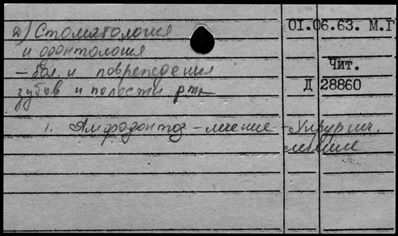 а) Стоматология
и одонтология
– бол. и повреждения
зубов и полости рта
1. Амфодонтоз – лечение – Хирургич.
лечение
01.06.63. М.Г
Чит.
Д 28860